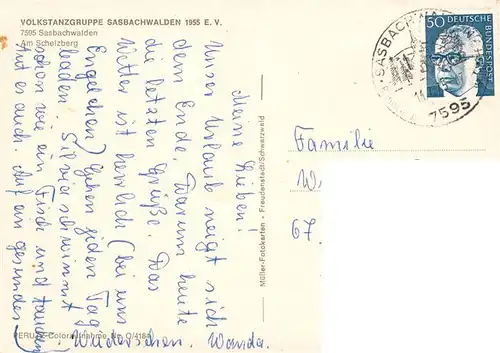 VOLKSTANZGRUPPE SASBACHWALDEN 1955 E. V.
7595 Sasbachwalden
Am Schelzberg
Meine Lieben!
Unser Urlaub neigt sich
dem Ende. Darum heute
die letzten Grüße. Das
Wetter ist herrlich (bei uns
Engelchen) Gehen jeden Tag
baden. Silvia schwimmt
schon wie ein Fisch und tauchen
tut es auch. Auf ein gesundes
Wiedersehen. Wanda.
PERUTZ-Coloraufnahme No. O/4164
Müller-Fotokarten · Freudenstadt/Schwarzwald
SASBACHWALDEN
7595
50 DEUTSCHE BUNDESPOST
Familie
W.
67.